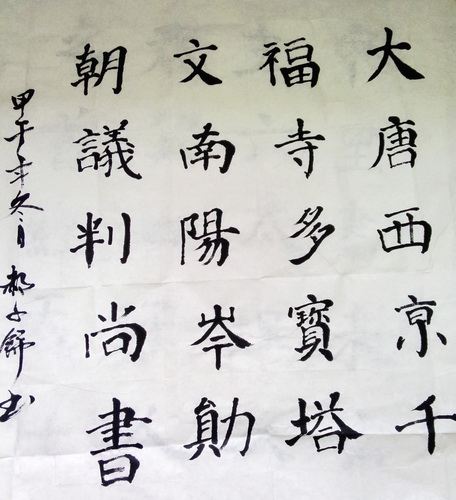 大唐西京千
福寺多寶塔
文南陽岑勛
朝議判尚書
甲午年冬月 书